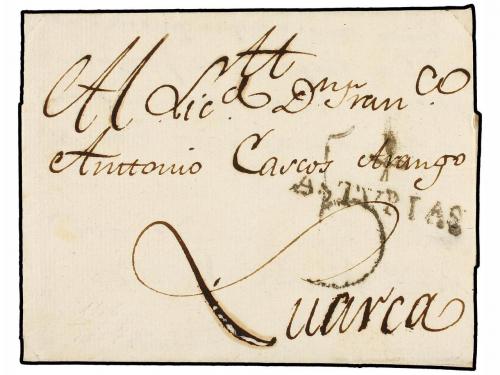 Al Lic.do Dn Franco
Antonio Cascos Arango
ASTVRIAS
Luarca